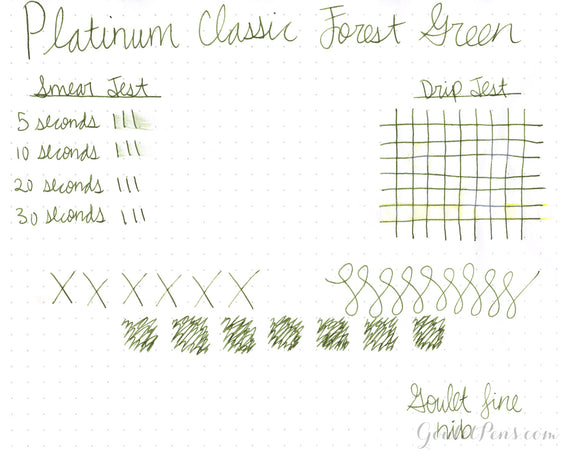 Platinum Classic Forest Green
Smear Test
5 seconds
10 seconds
20 seconds
30 seconds
Drip Test
Goulet fine
nib
GouletPens.com